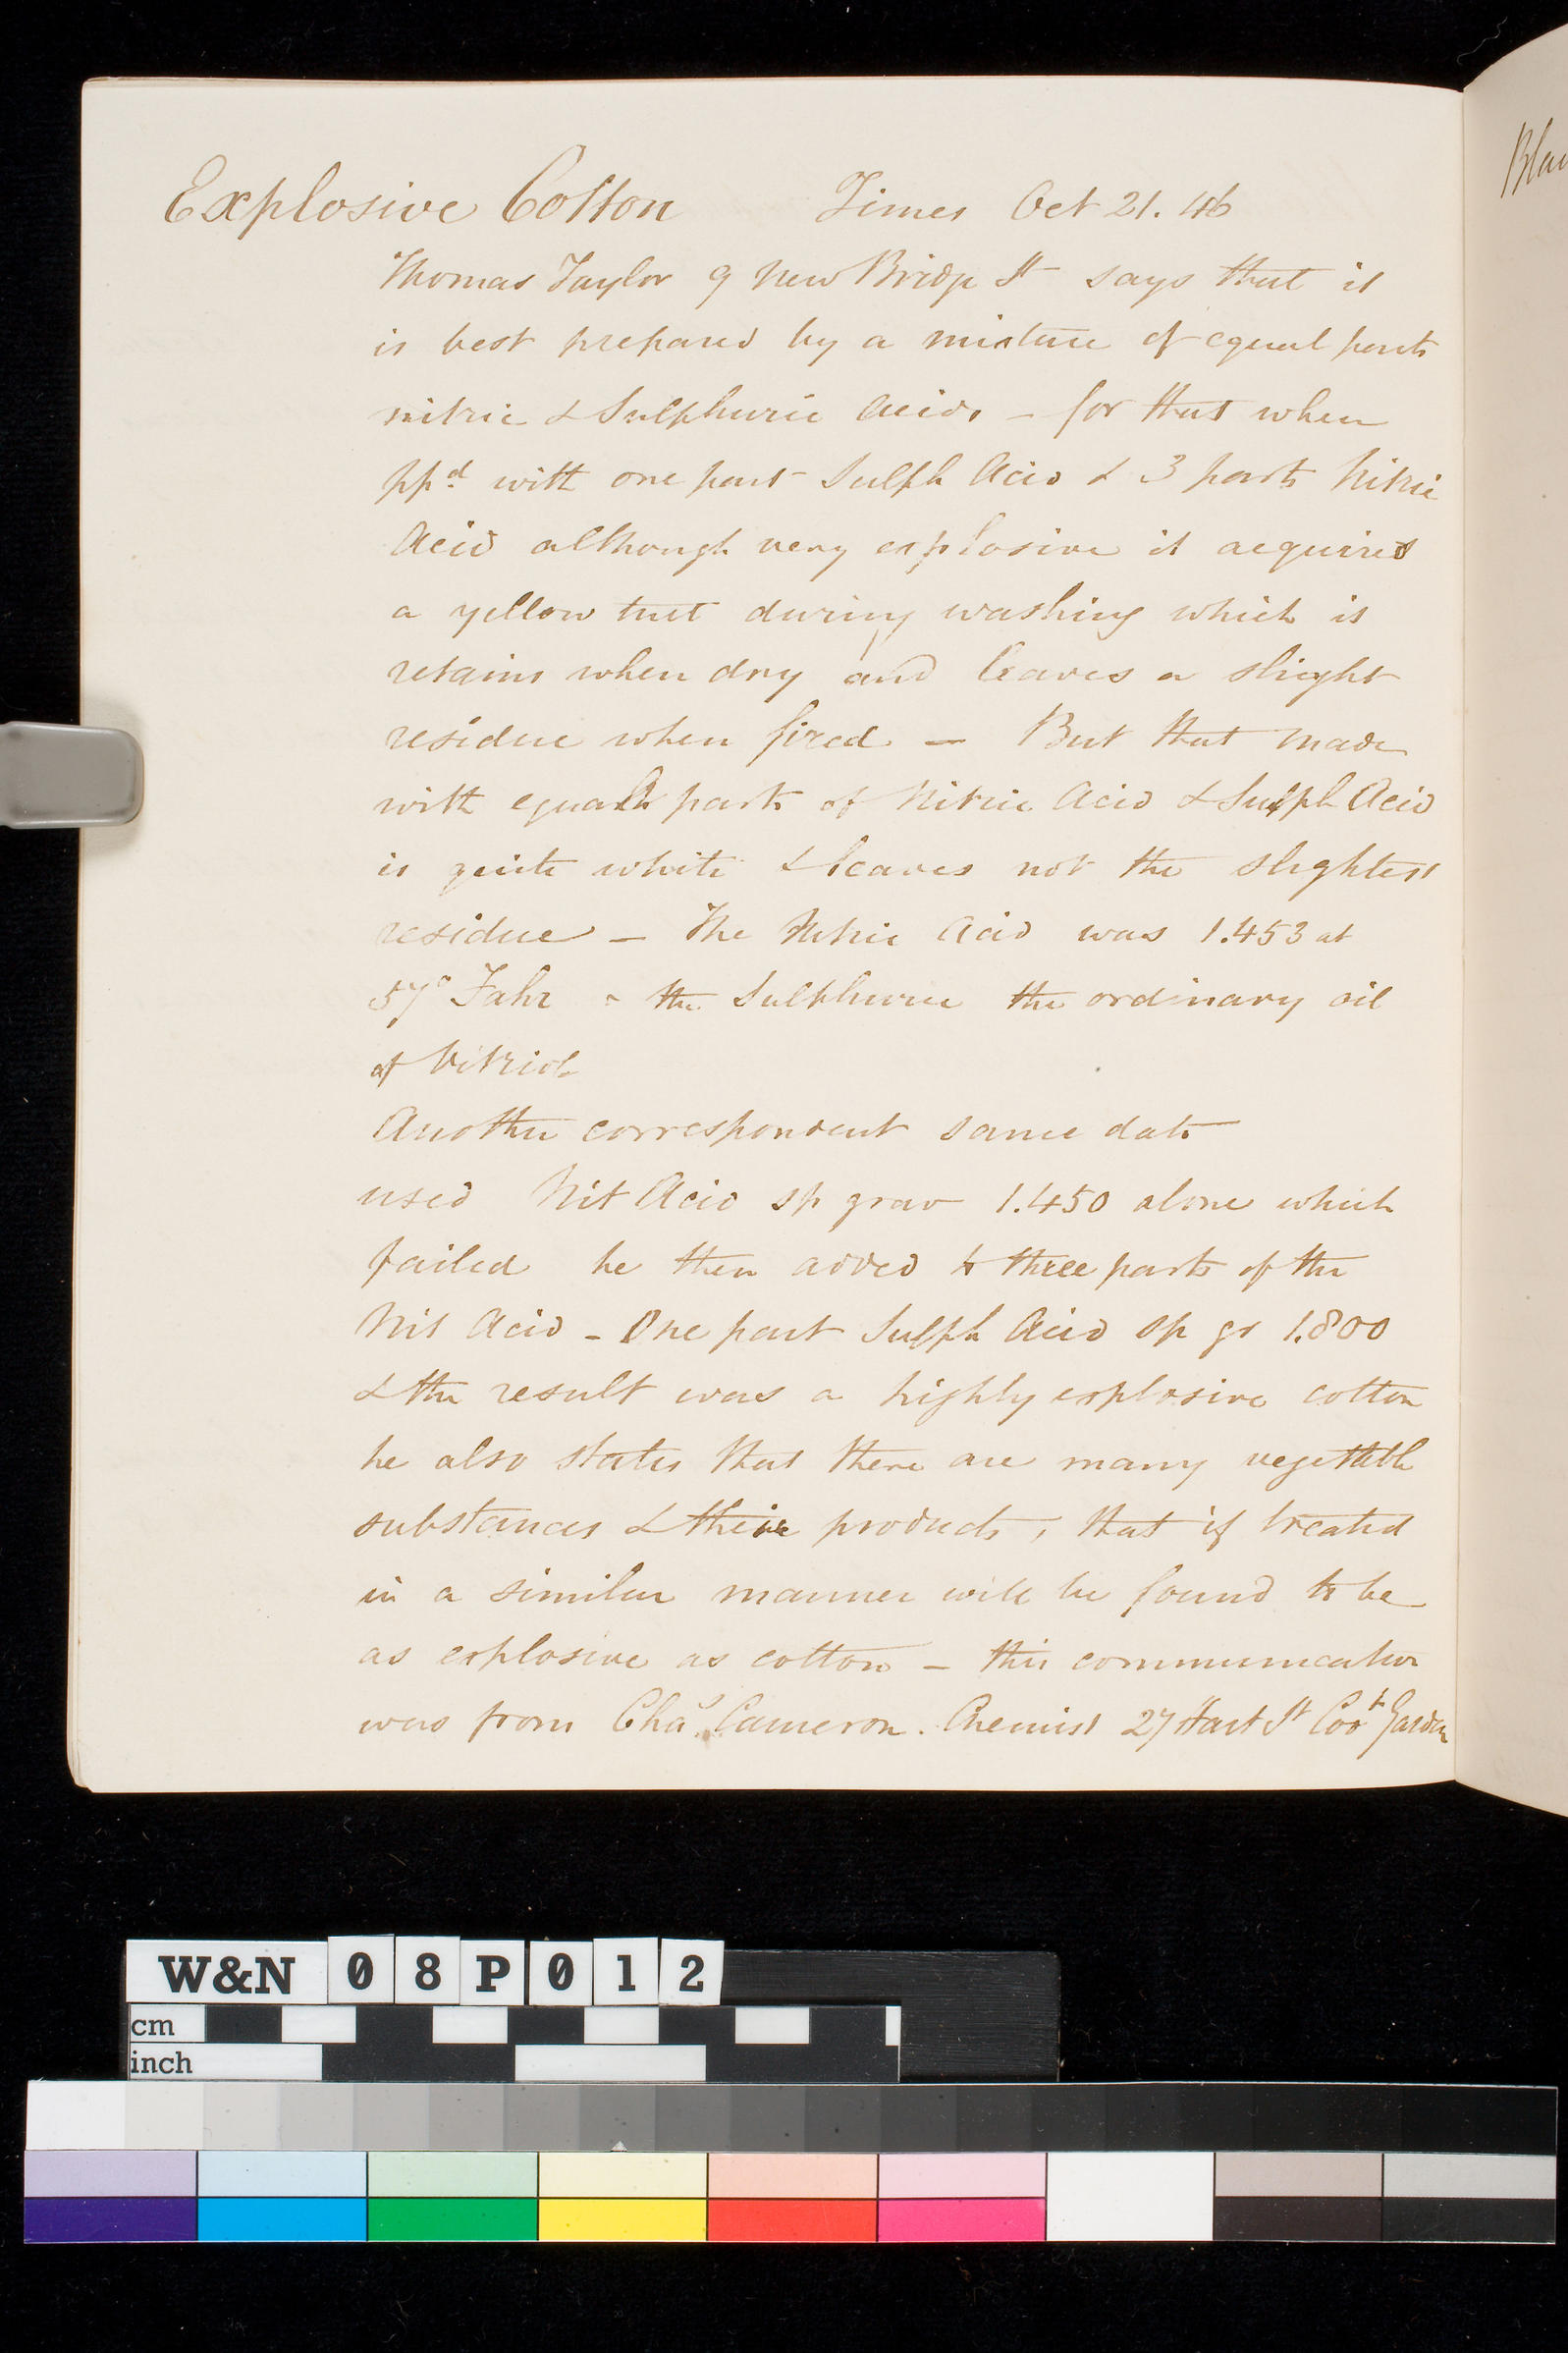 Explosive Cotton Times Oct 21. 46
Thomas Taylor 9 New Bridge St says that it
is best prepared by a mixture of equal parts
nitric & Sulphuric Acids – for that when
ppd with one part Sulph Acid & 3 parts Nitric
Acid although very explosive it acquires
a yellow tint during washing which it
retains when dry and leaves a slight
residue when fired – But that made
with equal parts of Nitric Acid & Sulph Acid
is quite white & leaves not the slightest
residue – The Nitric Acid was 1.453 at
57° Fahr - the Sulphuric the ordinary oil
of Vitriol
Another correspondent same date
used Nit Acid sp grav 1.450 alone which
failed he then added to three parts of the
Nit Acid – One part Sulph Acid sp gr 1.800
& the result was a highly explosive cotton
he also states that there are many vegetable
substances & their products, that if treated
in a similar manner will be found to be
as explosive as cotton – this communication
was from Chas Cameron. Chemist 27 Hart St Cov t Garden
Blac
W&N 08P012
cm
inch